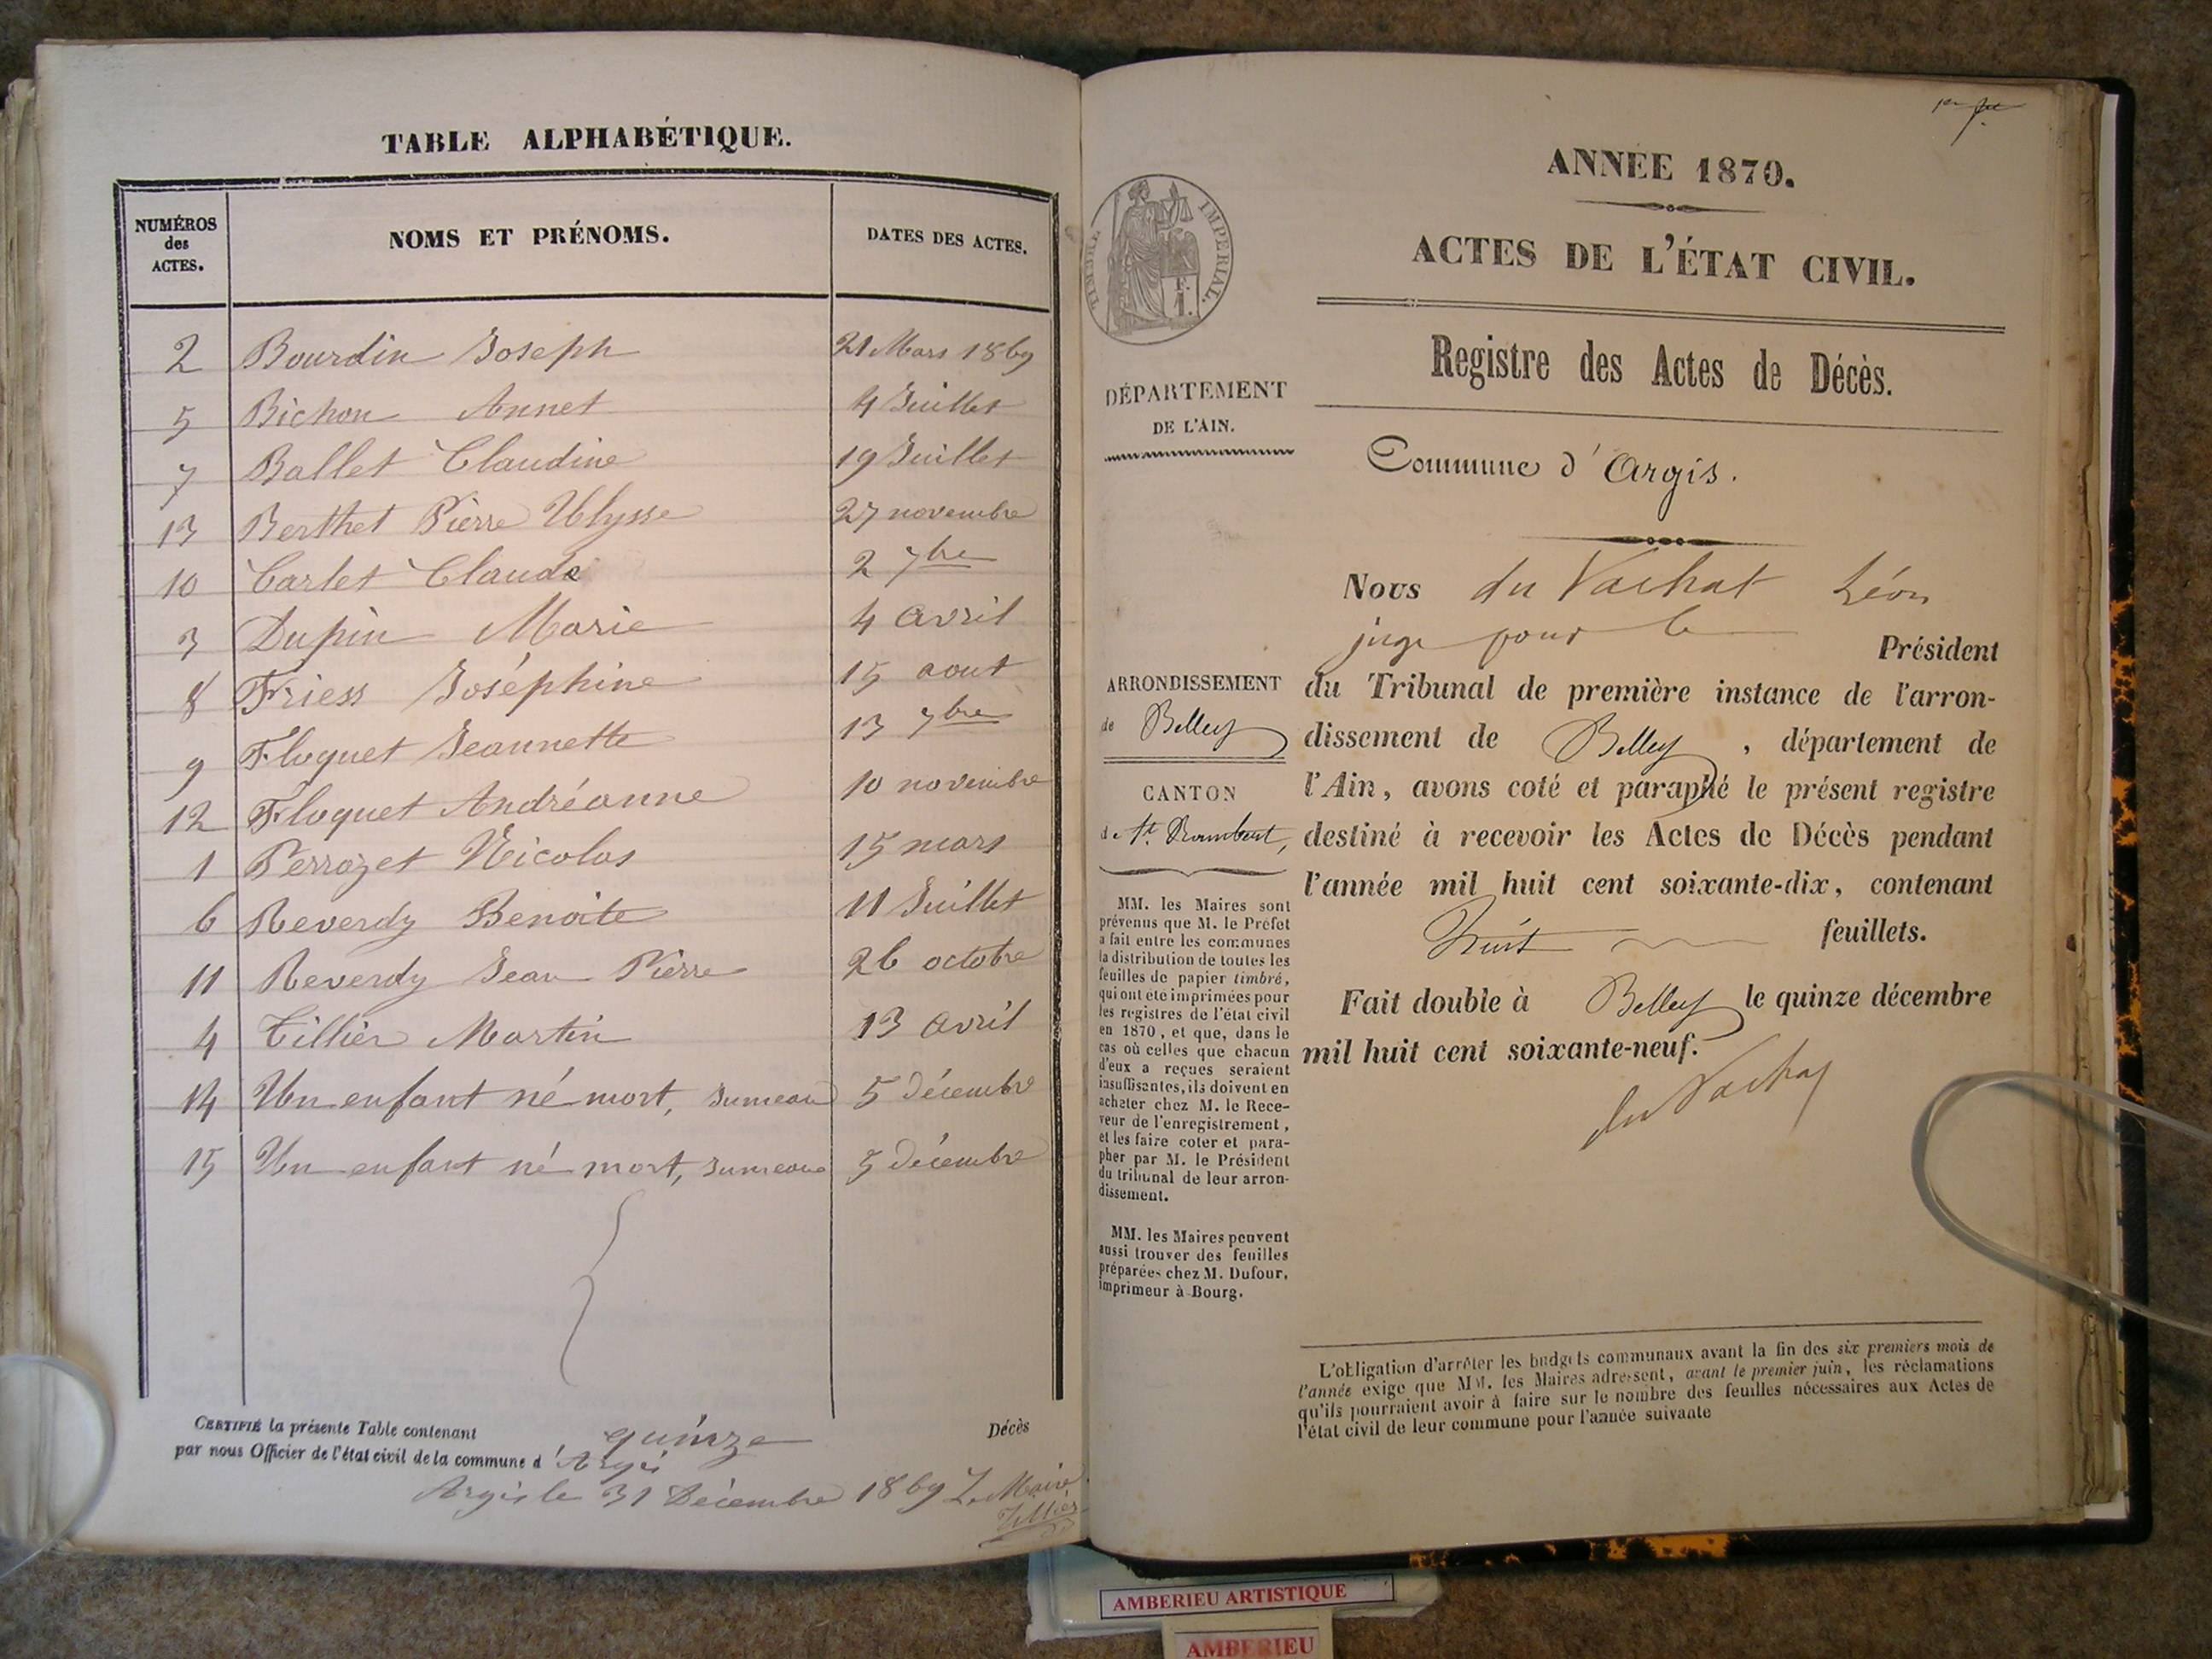 TABLE ALPHABÉTIQUE.
NUMÉROS
des
ACTES.
NOMS ET PRÉNOMS.
DATES DES ACTES.
2 Bourdin Joseph 21 Mars 1869
5 Bichon Annet 4 Juillet
7 Ballet Claudine 19 Juillet
13 Berthet Pierre Ulysse 27 novembre
10 Carlet Claude 2 7bre
3 Dupin Marie 4 avril
8 Friess Joséphine 15 aout
9 Floquet Jeannette 13 7bre
12 Floquet Andréanne 10 novembre
1 Perrozet Nicolas 15 mars
6 Reverdy Benoite 11 Juillet
11 Reverdy Jean Pierre 26 octobre
4 Tillier Martin 13 avril
14 Un enfant né mort, Jumeau 5 décembre
15 Un enfant né mort, Jumeau 5 décembre
CERTIFIÉ la présente Table contenant quinze Décès
par nous Officier de l'état civil de la commune d'Argis
Argis le 31 Décembre 1869 Le Maire
Tillier
1er
ANNÉE 1870.
ACTES DE L'ÉTAT CIVIL.
TIMBRE IMPÉRIAL.
F.
1.
Registre des Actes de Décès.
DÉPARTEMENT
DE L'AIN.
Commune d'Argis.
ARRONDISSEMENT
de Belley
CANTON
de St. Rambert,
MM. les Maires sont
prévenus que M. le Préfet
a fait entre les communes
la distribution de toutes les
feuilles de papier timbré,
qui ont été imprimées pour
les registres de l'état civil
en 1870, et que, dans le
cas où celles que chacun
d'eux a reçues seraient
insuffisantes, ils doivent en
acheter chez M. le Rece-
veur de l'enregistrement,
et les faire coter et para-
pher par M. le Président
du tribunal de leur arron-
dissement.
MM. les Maires peuvent
aussi trouver des feuilles
préparées chez M. Dufour,
imprimeur à Bourg.
Nous du Vachat Léon
juge pour le Président
du Tribunal de première instance de l'arron-
dissement de Belley, département de
l'Ain, avons coté et paraphé le présent registre
destiné à recevoir les Actes de Décès pendant
l'année mil huit cent soixante-dix, contenant
huit feuillets.
Fait double à Belley le quinze décembre
mil huit cent soixante-neuf.
du Vachat
L'obligation d'arrêter les budgets communaux avant la fin des six premiers mois de
l'année exige que MM. les Maires adressent, avant le premier juin, les réclamations
qu'ils pourraient avoir à faire sur le nombre des feuilles nécessaires aux Actes de
l'état civil de leur commune pour l'année suivante
AMBERIEU ARTISTIQUE
AMBERIEU